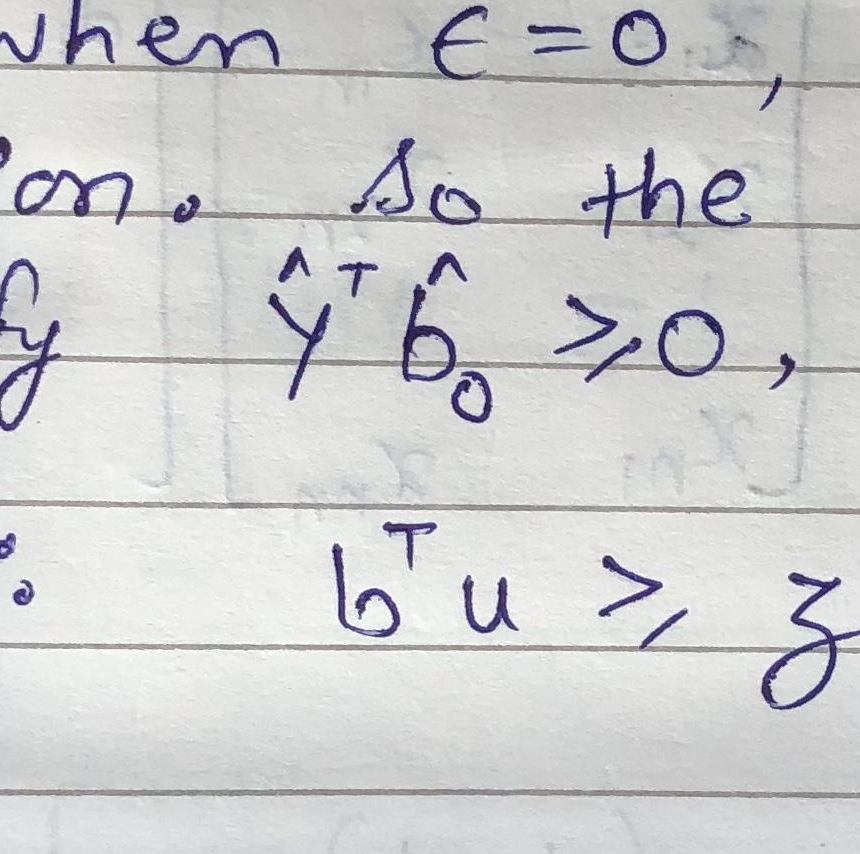 when ϵ = 0,
on. so the
fy ŷᵀ b̂₀ ⩾ 0,
: bᵀu ⩾ z